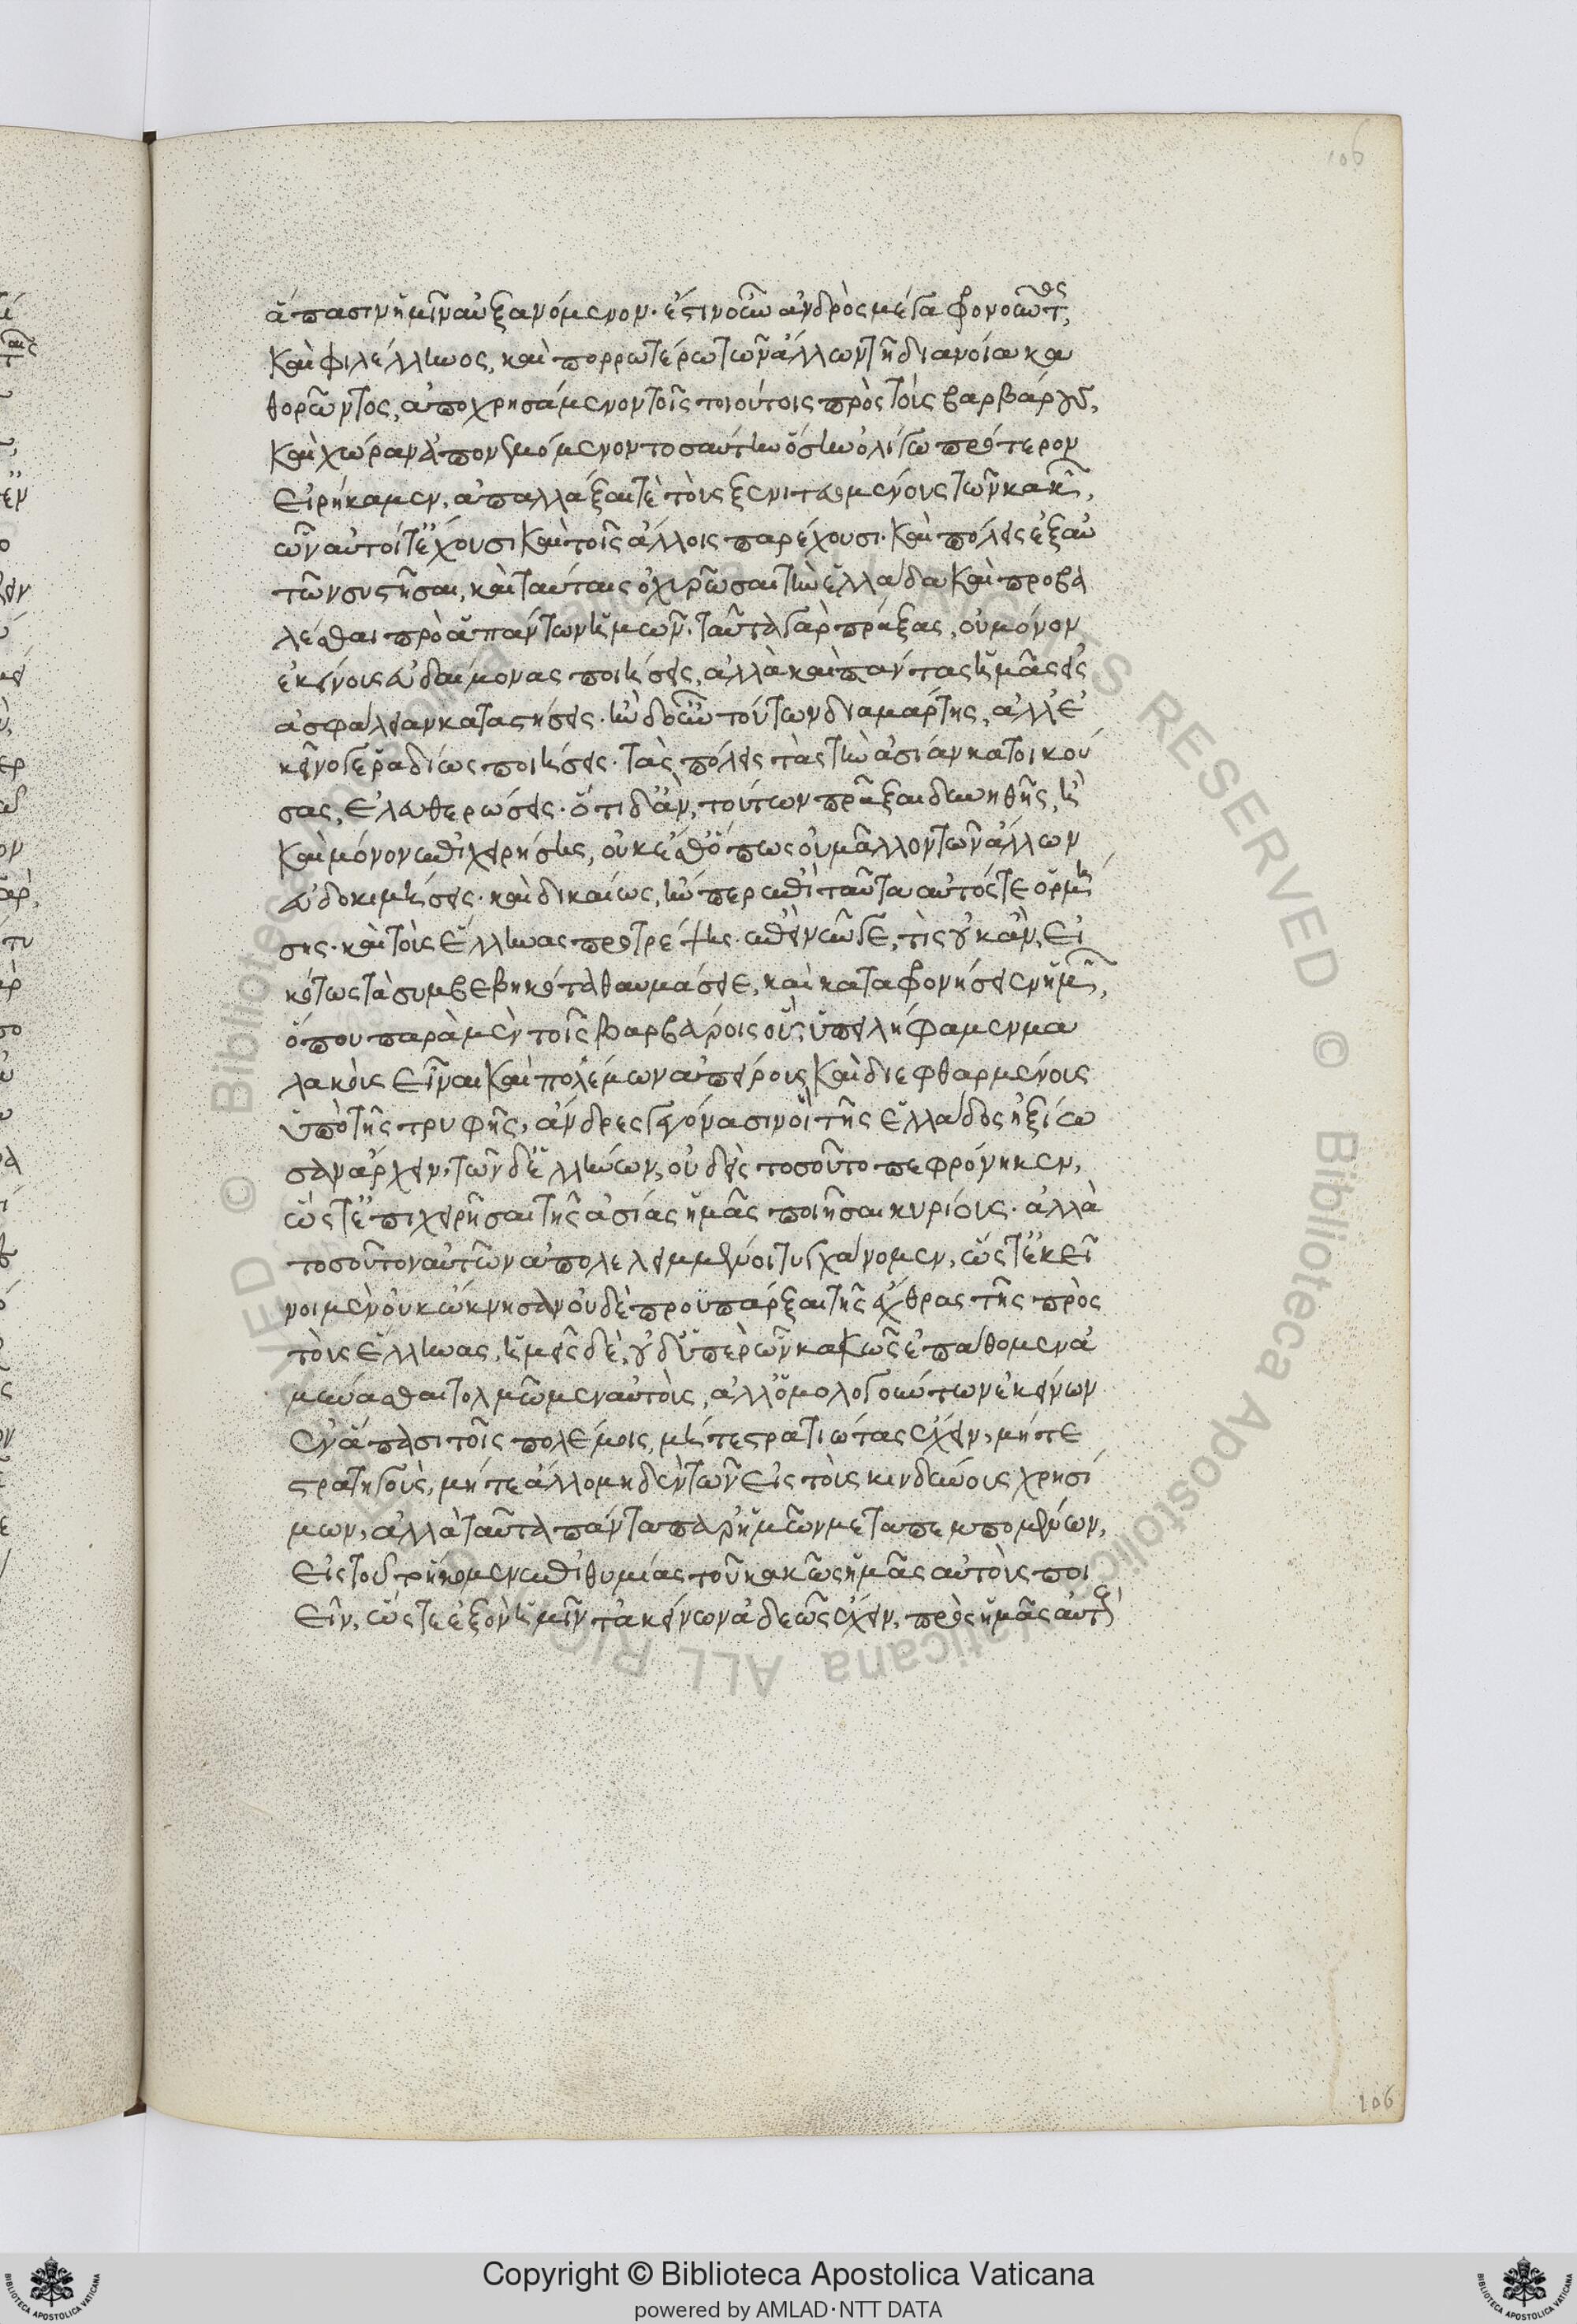 106
ἅπασιν ἡμῖν αὐξανόμενον. ἔστιν οὖν ἀνδρὸς μέγα φρονοῦντος,
καὶ φιλέλληνος, καὶ πορρωτέρω τῶν ἄλλων τῆ διανοία κα
θορῶντος, ἀποχρησάμενον τοῖς τοιούτοις πρὸς τοὺς βαρβάρους,
καὶ χώραν ἀποτεμόμενον τοσαύτην ὅσην ὀλίγω πρότερον
εἰρήκαμεν, ἀπαλλάξαι τὲ τοὺς ξενιτευομένους τῶν κακῶν,
ὧν αὐτοί τ' ἔχουσι καὶ τοῖς ἄλλοις παρέχουσι. καὶ πόλεις ἐξ αὐ
τῶν συστῆσαι, καὶ ταύταις ὀχυρῶσαι τὴν ἑλλάδα καὶ προβα
λέσθαι πρὸ ἁπάντων ἡμῶν. ταῦτα γὰρ πράξας, οὐ μόνον
ἐκείνους εὐδαίμονας ποιήσεις, ἀλλὰ καὶ πάντας ἡμᾶς εἰς
ἀσφάλειαν καταστήσεις. ἢν δ' οὖν τούτων διαμάρτης, ἀλλ' ἐ
κεῖνό γε ῥαδίως ποιήσεις. τὰς πόλεις τὰς τὴν ἀσίαν κατοικού
σας, ἐλευθερώσεις. ὅ τι δ' ἂν, τούτων πρᾶξαι δυνηθῆς, ἢ
καὶ μόνον ἐπιχειρήσης, οὐκ ἔσθ' ὅπως οὐ μᾶλλον τῶν ἄλλων
εὐδοκιμήσεις. καὶ δικαίως, ἤνπερ ἐπὶ ταῦτα αὐτός τε ὁρμή
σης. καὶ τοὺς ἕλληνας προτρέψης. ἐπεὶ νῦν γε, τίς οὐκ ἂν, εἰ
κότως τὰ συμβεβηκότα θαυμάσειε, καὶ καταφρονήσειεν ἡμῶν,
ὅπου παρὰ μὲν τοῖς βαρβάροις οὓς ὑπειλήφαμεν μα
λακοὺς εἶναι καὶ πολέμων ἀπείρους καὶ διεφθαρμένους
ὑπὸ τῆς τρυφῆς, ἄνδρες γεγόνασιν οἳ τῆς ἑλλάδος ἠξίω
σαν ἄρχειν, τῶν δ' ἑλλήνων, οὐδεὶς τοσοῦτο πεφρόνηκεν,
ὥστ' ἐπιχειρῆσαι τῆς ἀσίας ἡμᾶς ποιῆσαι κυρίους. ἀλλὰ
τοσοῦτον αὐτῶν ἀπολελειμμένοι τυγχάνομεν, ὥστ' ἐκεῖ
νοι μὲν οὐκ ὤκνησαν οὐδὲ προϋπάρξαι τῆς ἔχθρας τῆς πρὸς
τοὺς ἕλληνας, ἡμεῖς δὲ, οὐδ' ὑπὲρ ὧν κακῶς ἐπάθομεν ἀ
μύνασθαι τολμῶμεν αὐτοὺς, ἀλλ' ὁμολογούντων ἐκείνων
ἐν ἅπασι τοῖς πολέμοις, μήτε στρατιώτας ἔχειν, μήτε
στρατηγοὺς, μήτε ἄλλο μηδὲν τῶν εἰς τοὺς κινδύνους χρησί
μων, ἀλλὰ ταῦτα πάντα παρ' ἡμῶν μεταπεμπομένων,
εἰς τοῦθ' ἥκομεν ἐπιθυμίας τοῦ κακῶς ἡμᾶς αὐτοὺς ποι
εῖν, ὥστε ἐξὸν ἡμῖν τἀκείνων ἀδεῶς ἔχειν, πρὸς ἡμᾶς αὐτοὺς
106
Copyright © Biblioteca Apostolica Vaticana
powered by AMLAD·NTT DATA